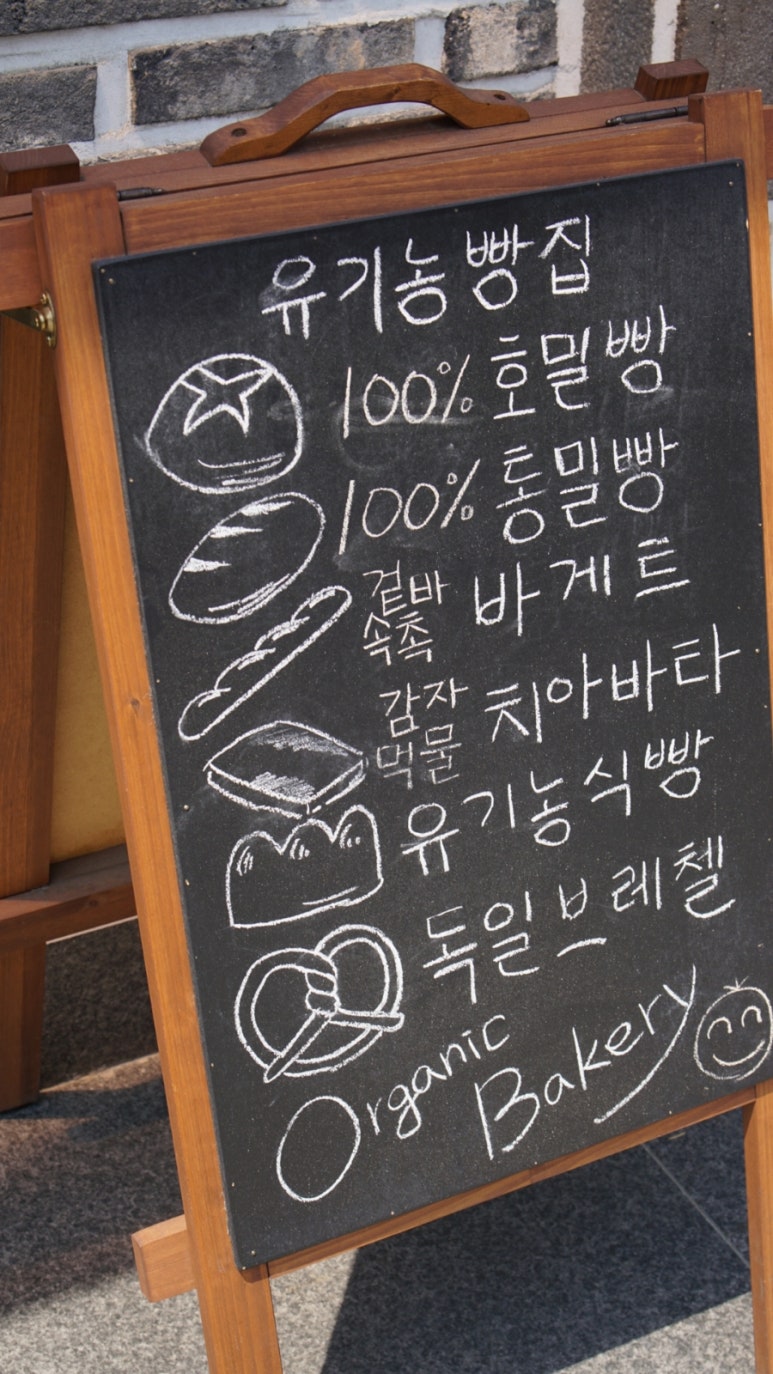 유기농 빵집
100% 호밀빵
100% 통밀빵
겉바
속촉
바게트
감자
먹물
치아바타
유기농식빵
독일브레첼
Organic
Bakery